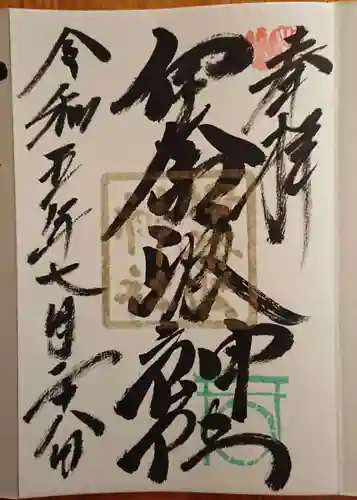 奉拝
伊奈波神社
令和五年七月二十八日